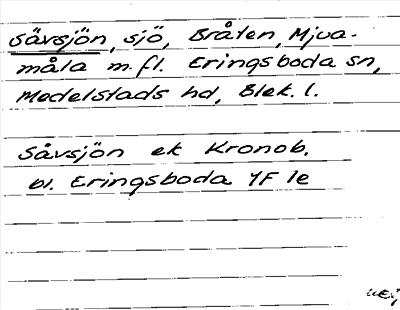 Sävsjön, sjö, Bråten, Mjua-
måla m.fl. Eringsboda sn,
Medelstads hd, Blek. l.
Sävsjön ek Kronob.
bl. Eringsboda YF 1e